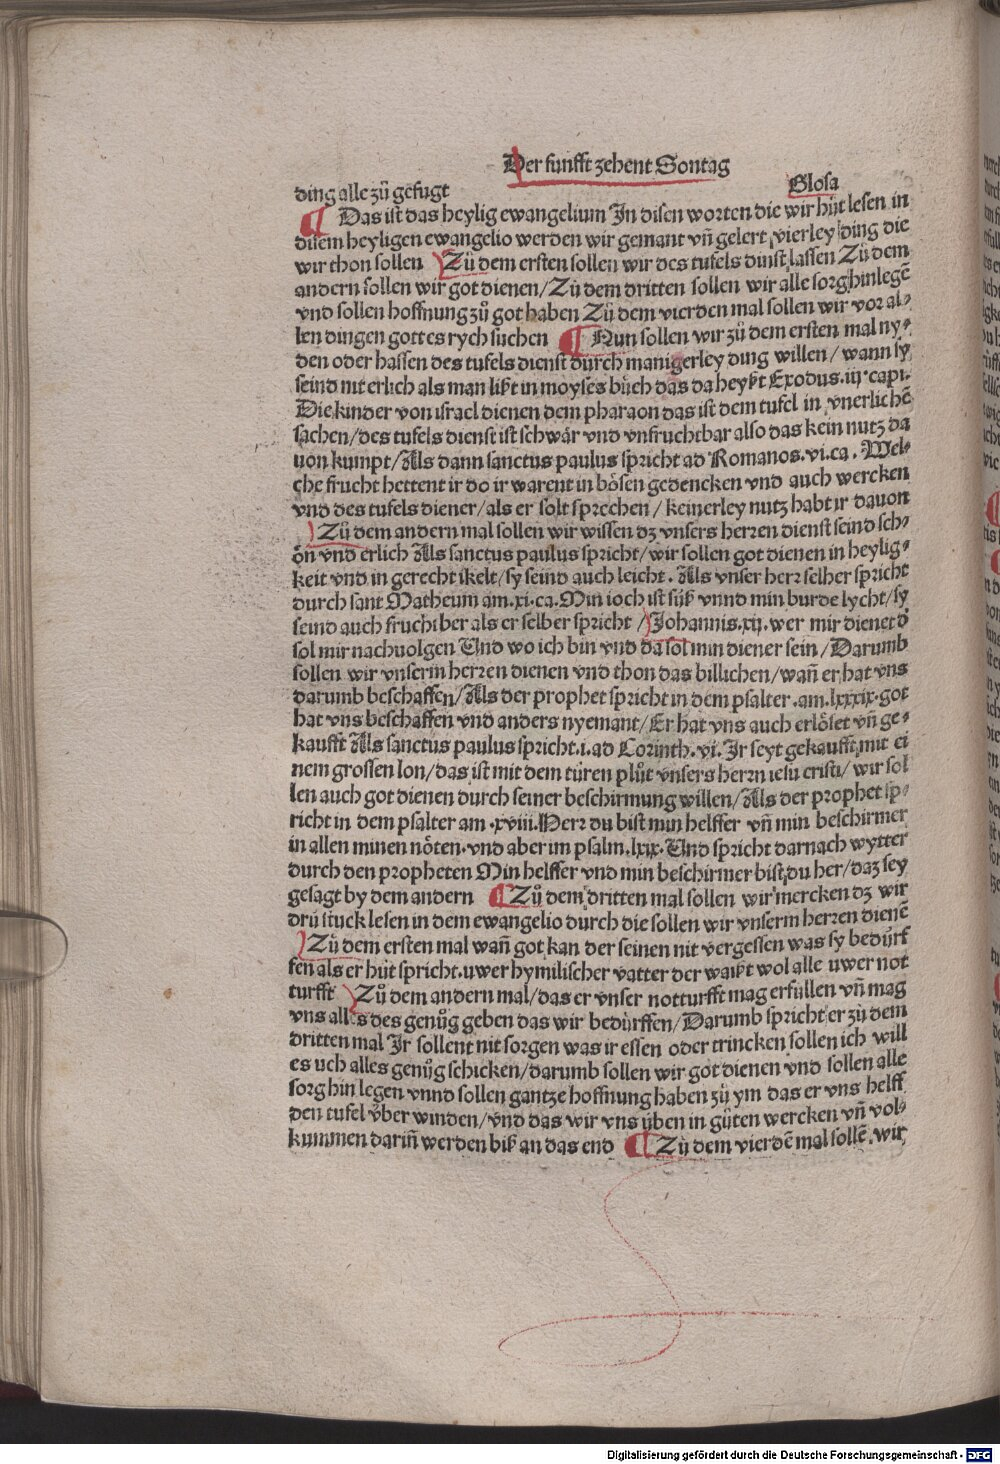 Der funfft zehent Sontag
ding alle zů gefugt
Glosa
Das ist das heylig ewangelium In disen worten die wir hüt lesen in
disem heyligen ewangelio werden wir gemant vñ gelert vierley ding die
wir thon sollen Zů dem ersten sollen wir des tufels dinst lassen Zů dem
andern sollen wir got dienen/ Zů dem dritten sollen wir alle sorg hinlegẽ
vnd sollen hoffnung zů got haben Zů dem vierden mal sollen wir vor al⸗
len dingen gottes rych suchen Nun sollen wir zů dem ersten mal ny⸗
den oder hassen des tufels dienst durch manigerley ding willen/ wann sy
seind nit erlich als man lißt in moyses bůch das da heyßt Exodus.iij.capi.
Die kinder von israel dienen dem pharaon das ist dem tufel in vnerlichẽ
sachen/ des tufels dienst ist schwår vnd vnfruchtbar also das kein nutz da
uon kumpt/ Als dann sanctus paulus spricht ad Romanos.vi.ca. Wel⸗
che frucht hettent ir do ir warent in bösen gedencken vnd auch wercken
vnd des tufels diener/ als er solt sprechen/ keinerley nutz habt ir dauon
Zů dem andern mal sollen wir wissen dz vnsers herren dienst seind sch⸗
ön vnd erlich Als sanctus paulus spricht/ wir sollen got dienen in heylig⸗
keit vnd in gerechtikelt/ sy seind auch leicht. Als vnser herr selber spricht
durch sant Matheum am.xi.ca. Min ioch ist süß vnnd min burde lycht/ sy
seind auch fruchtber als er selber spricht/ Johannis.xij.wer mir dienet d̉
sol mir nachuolgen Und wo ich bin vnd da sol min diener sein/ Darumb
sollen wir vnserm herren dienen vnd thon das billichen/ wañ er hat vns
darumb beschaffen/ Als der prophet spricht in dem psalter.am.lxxxix.got
hat vns beschaffen vnd anders nyemant/ Er hat vns auch erlöset vñ ge⸗
kaufft Als sanctus paulus spricht.i.ad Corinth.vi. Ir seyt gekaufft mit ei
nem grossen lon/ das ist mit dem türen plůt vnsers herrn iesu cristi/ wir sol
len auch got dienen durch seiner beschirmung willen/ Als der prophet sp⸗
richt in dem psalter am.xviii. Herr du bist min helffer vñ min beschirmer
in allen minen nöten.vnd aber im psalm.lxix. Und spricht darnach wytter
durch den propheten Min helffer vnd min beschirmer bist du her/ daz sey
gesagt by dem andern Zů dem dritten mal sollen wir mercken dz wir
drü stuck lesen in dem ewangelio durch die sollen wir vnserm herren dienẽ
Zů dem ersten mal wañ got kan der seinen nit vergessen was sy bedůrf
fen als er hüt spricht.uwer hymilischer vatter der waißt wol alle uwer not
turfft Zů dem andern mal/ das er vnser notturfft mag erfullen vñ mag
vns alles des genůg geben das wir bedürffen/ Darumb spricht er zů dem
dritten mal Ir sollent nit sorgen was ir essen oder trincken sollen ich will
es uch alles genůg schicken/ darumb sollen wir got dienen vnd sollen alle
sorg hin legen vnnd sollen gantze hoffnung haben zů ym das er vns helff
den tufel über winden/ vnd das wir vns üben in gůten wercken vñ vol⸗
kummen dariñ werden biß an das end Zů dem vierdẽ mal sollẽ wir
Digitalisierung gefördert durch die Deutsche Forschungsgemeinschaft - DFG